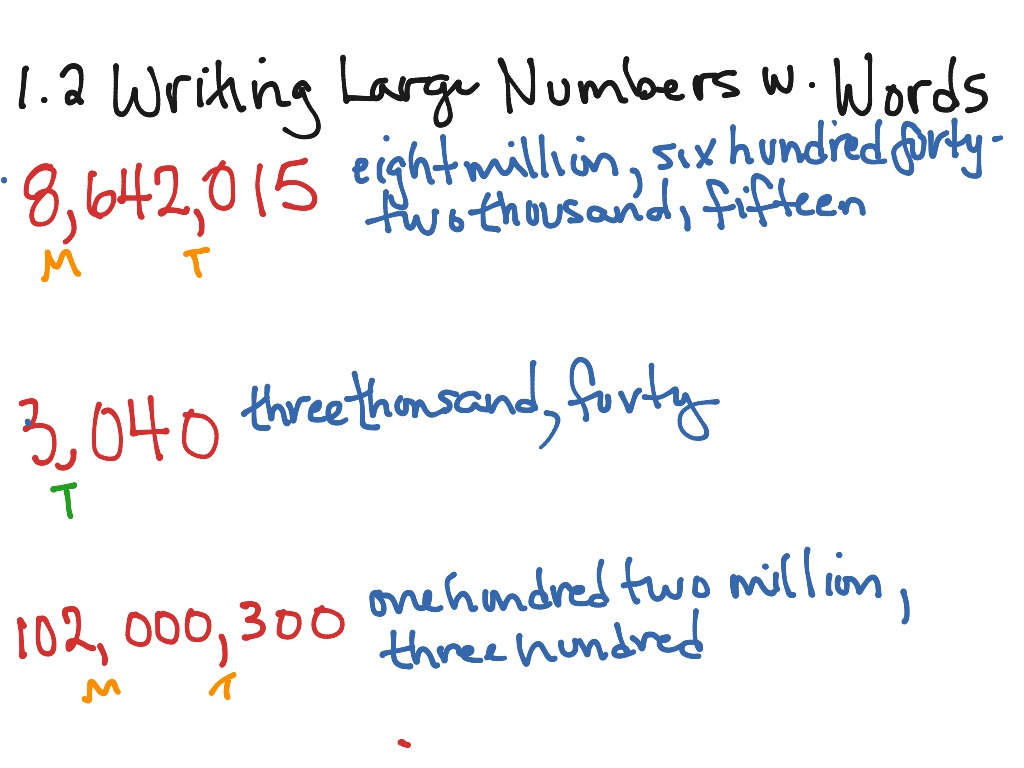 1.2 Writing Large Numbers w. Words
8,642,015 eight million, six hundred forty-
two thousand, fifteen
M T
3,040 three thousand, forty
T
102,000,300 one hundred two million,
three hundred
M T